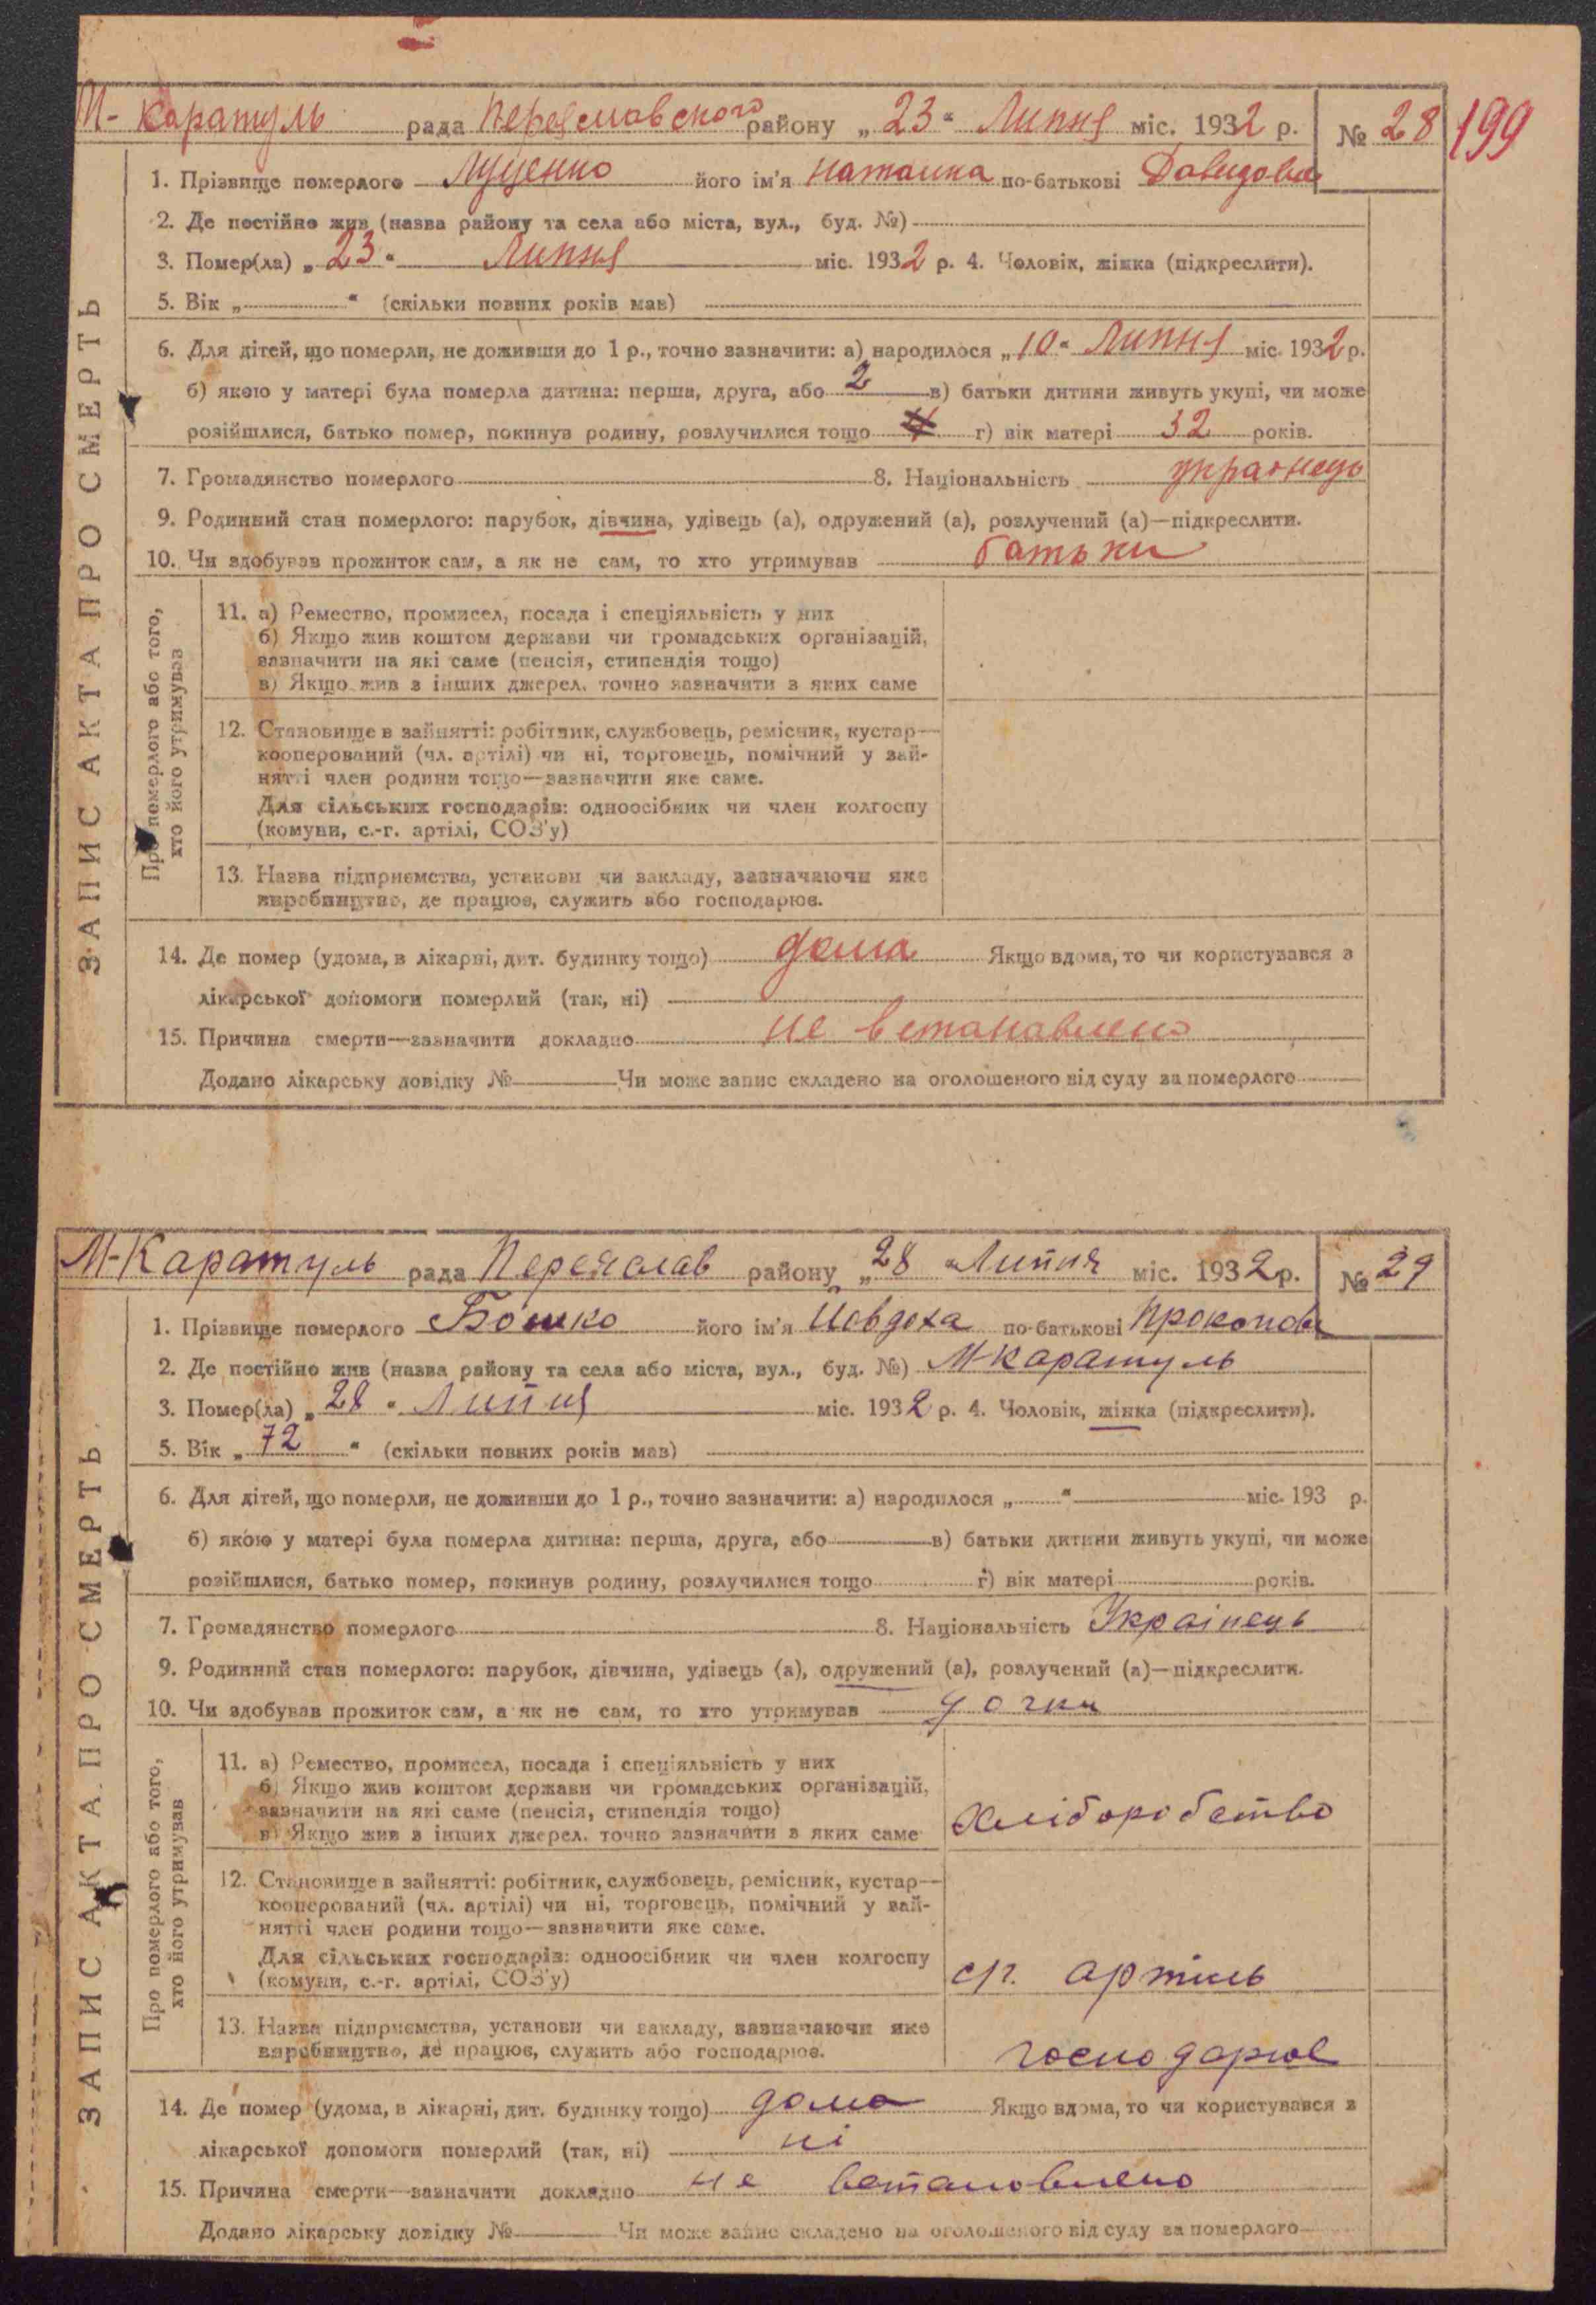 М-Каратуль рада Переяславского району „23“ Липня міс. 1932 р. № 28
199
1. Прізвище померлого Луценко його ім'я Наталка по-батькові Давидова
2. Де постійно жив (назва району та села або міста, вул., буд. №)
3. Помер(ла) „23“ Липня міс. 1932 р. 4. Чоловік, жінка (підкреслити).
5. Вік „ “ (скільки повних років мав)
6. Для дітей, що померли, не доживши до 1 р., точно зазначити: а) народилося „10“ Липня міс. 1932 р.
б) якою у матері була померла дитина: перша, друга, або 2 в) батьки дитини живуть укупі, чи може
розійшлися, батько помер, покинув родину, розлучилися тощо г) вік матері 32 років.
7. Громадянство померлого 8. Національність украінець
9. Родинний стан померлого: парубок, дівчина, удівець (а), одружений (а), розлучений (а)—підкреслити.
10. Чи здобував прожиток сам, а як не сам, то хто утримував батьки
ЗАПИС АКТА ПРО СМЕРТЬ
Про померлого або того,
хто його утримував
11. а) Ремество, промисел, посада і спеціяльність у них
б) Якщо жив коштом держави чи громадських організацій,
зазначити на які саме (пенсія, стипендія тощо)
в) Якщо жив з інших джерел, точно зазначити з яких саме
12. Становище в зайнятті: робітник, службовець, ремісник, кустар—
кооперований (чл. артілі) чи ні, торговець, помічний у зай-
нятті член родини тощо—зазначити яке саме.
Для сільських господарів: одноосібник чи член колгоспу
(комуни, с.-г. артілі, СОЗ'у)
13. Назва підприємства, установи чи закладу, зазначаючи яке
виробництво, де працює, служить або господарює.
14. Де помер (удома, в лікарні, дит. будинку тощо) дома Якщо вдома, то чи користувався з
лікарської допомоги померлий (так, ні)
15. Причина смерти—зазначити докладно не встанавлено
Додано лікарську довідку № Чи може запис складено на оголошеного від суду за померлого
М-Каратуль рада Переяслав району „28 “ Липня міс. 1932 р. № 29
1. Прізвище померлого Бошко його ім'я Иовдоха по-батькові Прокопов
2. Де постійно жив (назва району та села або міста, вул., буд. №) М-Каратуль
3. Помер(ла) „28“ Липня міс. 1932 р. 4. Чоловік, жінка (підкреслити).
5. Вік „72“ (скільки повних років мав)
6. Для дітей, що померли, не доживши до 1 р., точно зазначити: а) народилося „ “ міс. 193 р.
б) якою у матері була померла дитина: перша, друга, або в) батьки дитини живуть укупі, чи може
розійшлися, батько помер, покинув родину, розлучилися тощо г) вік матері років.
7. Громадянство померлого 8. Національність Украінець
9. Родинний стан померлого: парубок, дівчина, удівець (а), одружений (а), розлучений (а)—підкреслити.
10. Чи здобував прожиток сам, а як не сам, то хто утримував дочки
ЗАПИС АКТА ПРО СМЕРТЬ
Про померлого або того,
хто його утримував
11. а) Ремество, промисел, посада і спеціяльність у них
б) Якщо жив коштом держави чи громадських організацій,
зазначити на які саме (пенсія, стипендія тощо)
в) Якщо жив з інших джерел, точно зазначити з яких саме Хліборобство
12. Становище в зайнятті: робітник, службовець, ремісник, кустар—
кооперований (чл. артілі) чи ні, торговець, помічний у зай-
нятті член родини тощо—зазначити яке саме.
Для сільських господарів: одноосібник чи член колгоспу
(комуни, с.-г. артілі, СОЗ'у) с/г. артиль
13. Назва підприємства, установи чи закладу, зазначаючи яке
виробництво, де працює, служить або господарює. господарює
14. Де помер (удома, в лікарні, дит. будинку тощо) дома Якщо вдома, то чи користувався з
лікарської допомоги померлий (так, ні) ні
15. Причина смерти—зазначити докладно не встановлено
Додано лікарську довідку № Чи може запис складено на оголошеного від суду за померлого